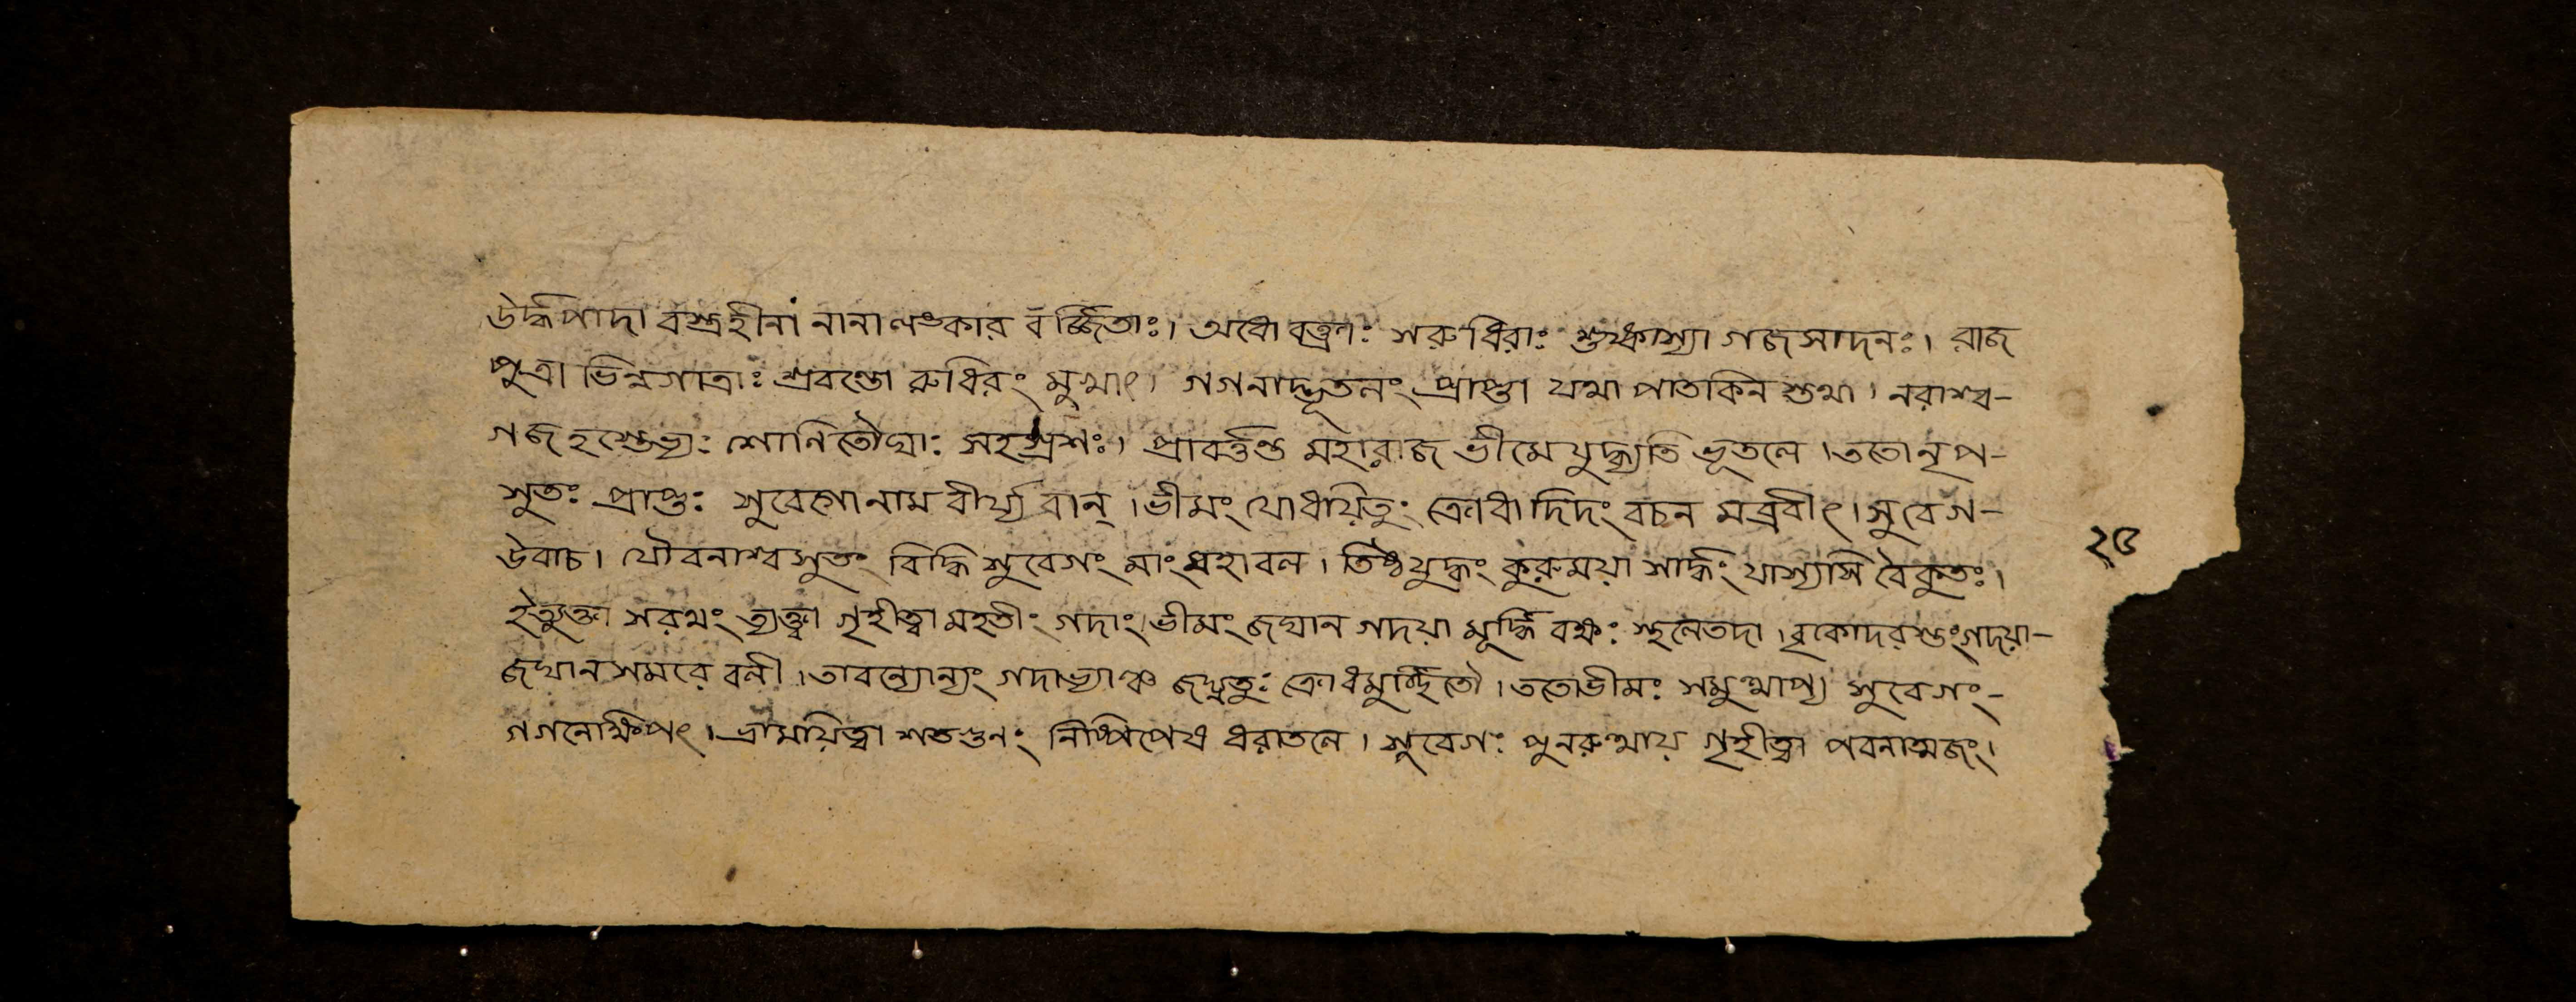 উর্দ্ধপাদা বস্ত্রহীনা নানালঙ্কার বর্জ্জিতাঃ। অধো বক্ত্রাঃ সরুধিরাঃ শুষ্কাস্যা গজসাদিনঃ। রাজ
পুত্রা ভিন্নগাত্রাঃ শ্রবন্তো রুধিরং মুখাৎ। গগনাদ্ভূতলং প্রাপ্তা যথা পাতকিন স্তথা। নরাশ্ব-
গজ হস্তেভ্যঃ শোনিতৌঘাঃ সহস্রশঃ। প্রাবর্ত্তন্ত মহারাজ ভীমে যুদ্ধ্যতি ভূতলে। ততো নৃপ-
সুতঃ প্রাপ্তঃ সুবেগো নাম বীর্য্যবান্। ভীমং যোধয়িতুং ক্রোধাদিদং বচন মব্রবীৎ। সুবেগ-
উবাচ। যৌবনাশ্বসুতং বিদ্ধি সুবেগং মাং মহাবল। তিষ্ঠ যুদ্ধং কুরু ময়া সার্দ্ধং যাস্যসি বৈ কুতঃ।
ইত্যুক্ত্বা সরথং ত্যক্ত্বা গৃহীত্বা মহতীং গদাং। ভীমং জঘান গদয়া মূর্দ্ধ্নি বক্ষঃ স্থলেতদা। বৃকোদরস্তং গদয়া-
জঘান সমরে বলী। তাবন্যোন্যং গদাভ্যাঞ্চ জঘ্নতুঃ ক্রোধমুর্চ্ছিতৌ। ততোভীমঃ সমুত্থাপ্য সুবেগং-
গগনেক্ষিপৎ। ভ্রাময়িত্বা শতগুনং নিষ্পিপেষ ধরাতলে। সুবেগঃ পুনরুত্থায় গৃহীত্বা পবনাত্মজং।
২৫